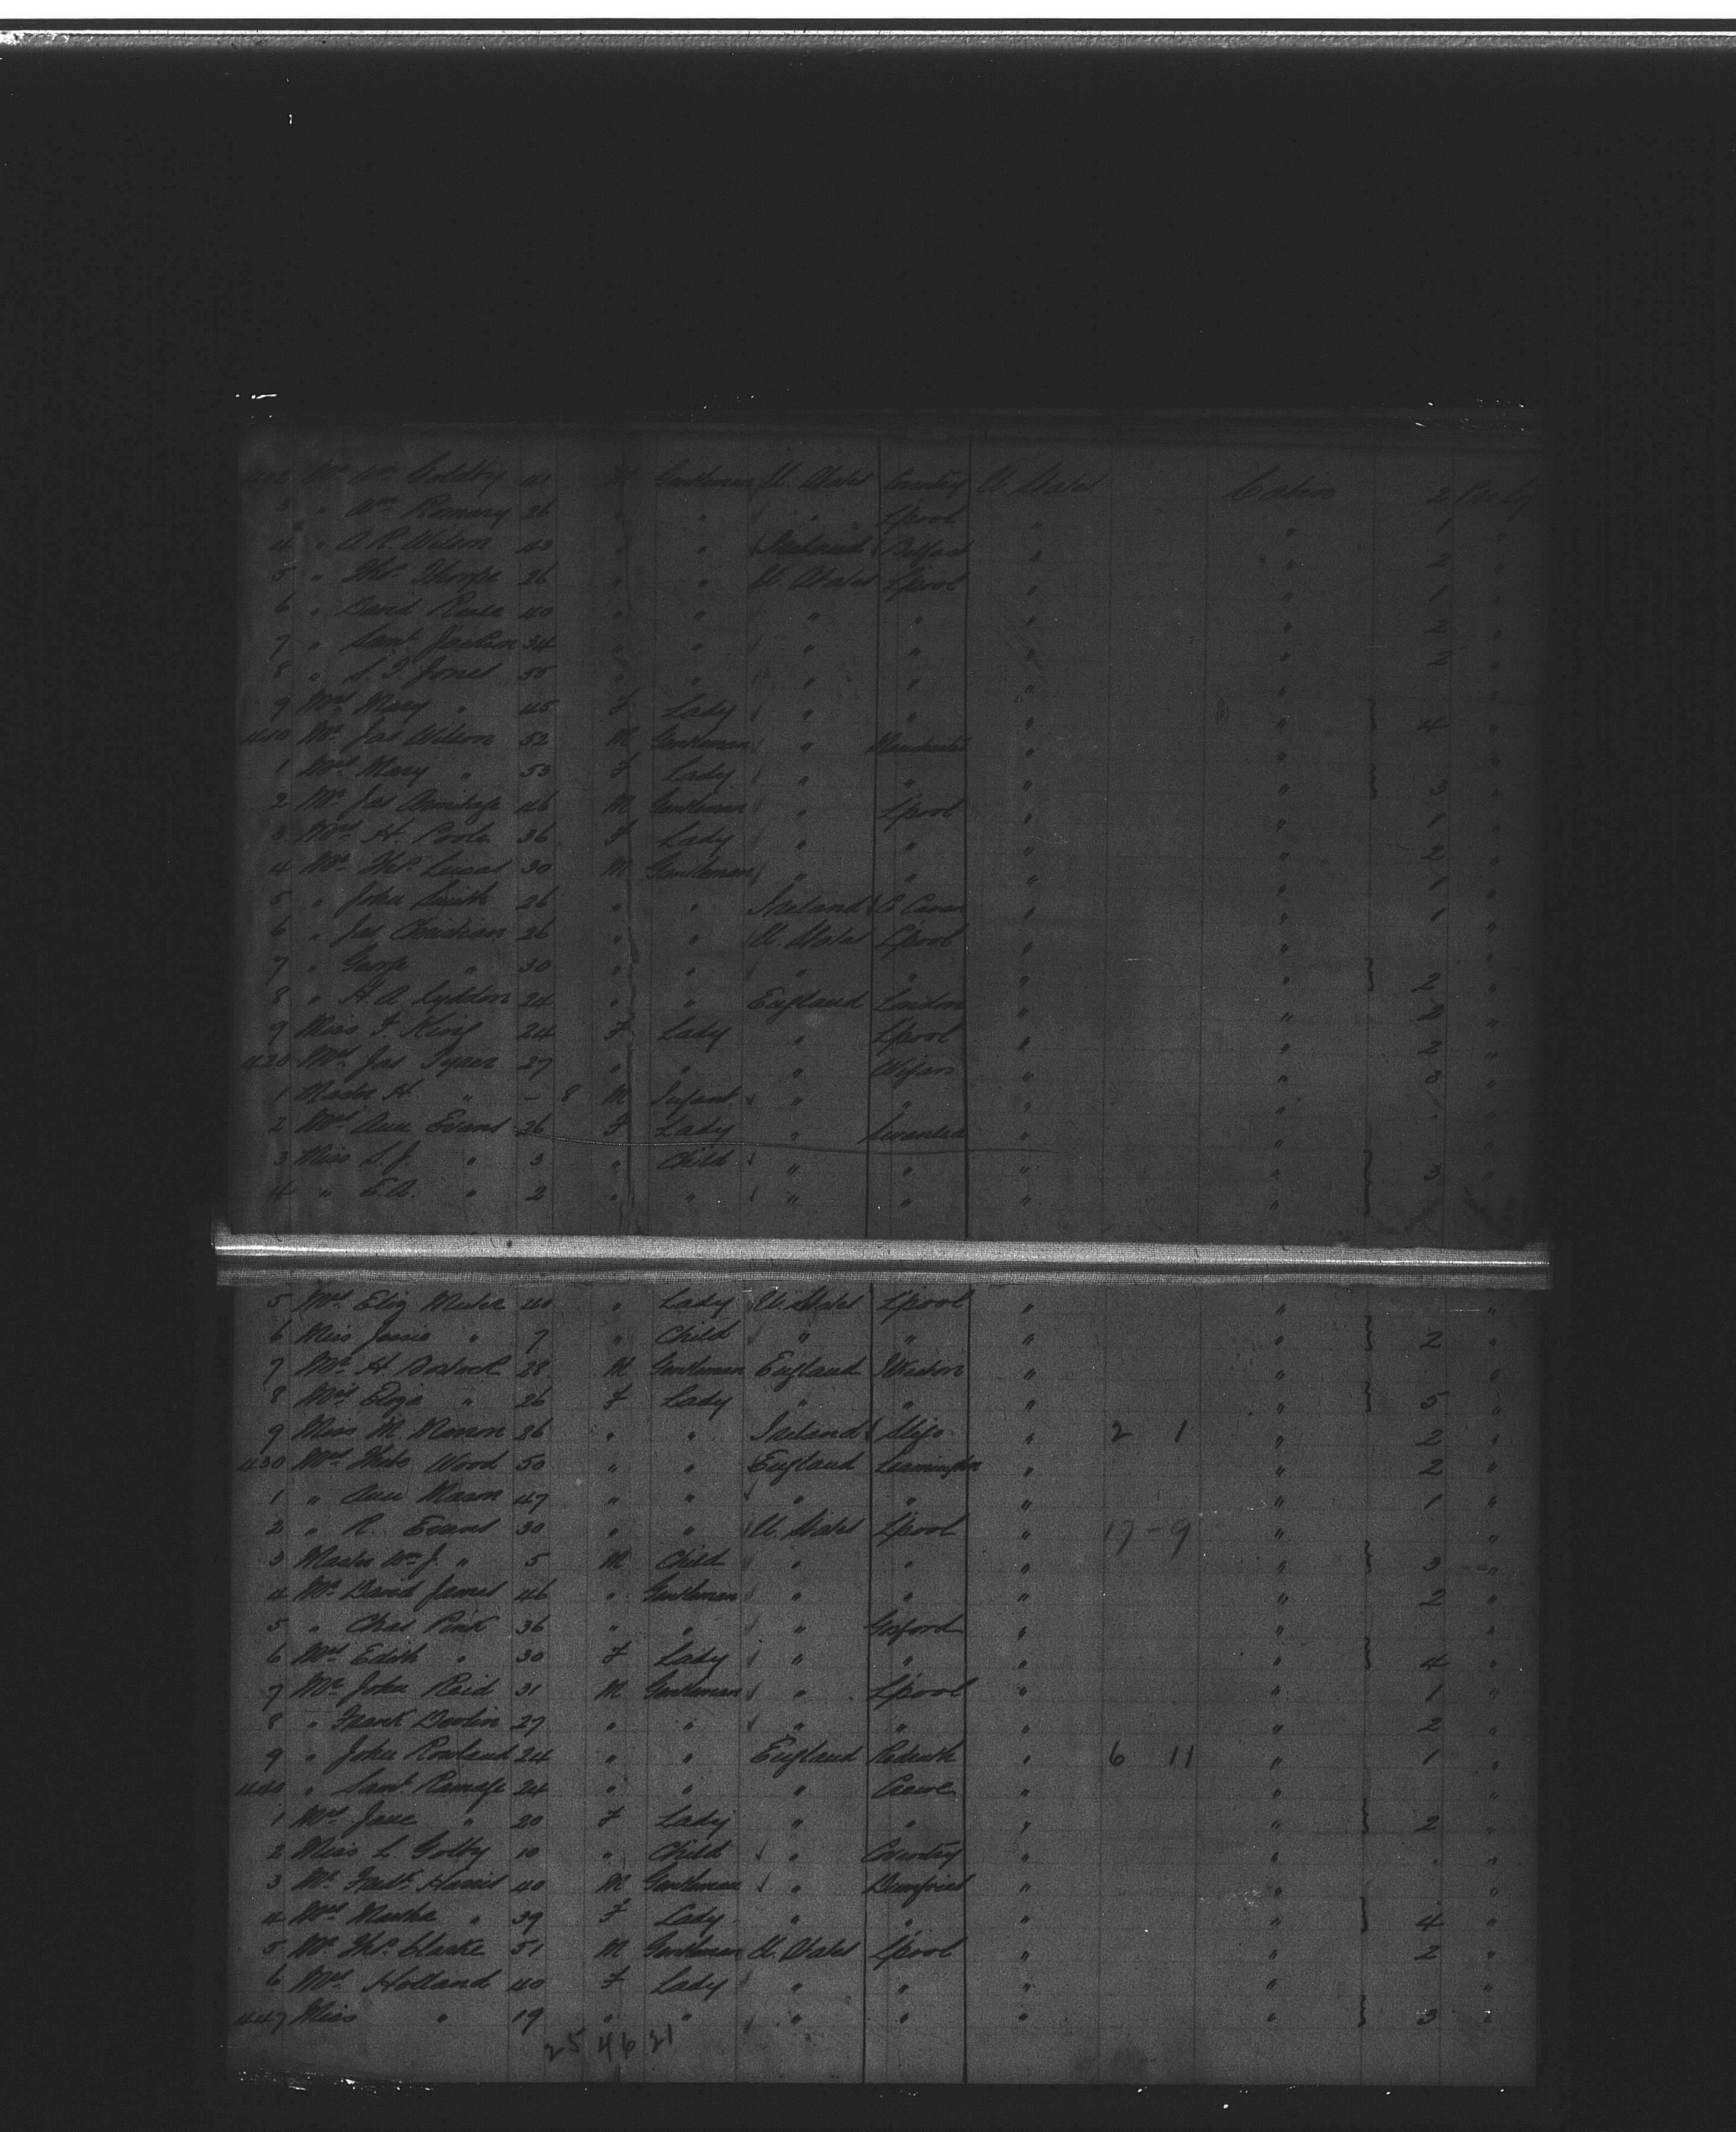 402 Mr Wm Goldby 41 M Gentleman U. States Coventry U. States Cabin 2
3 " Wm Romary 26 " " " L'pool " " 1 "
4 " A R. Wilson 43 " " Ireland Belfast " " 2 "
5 " Thos. Thorpe 26 " " U. States L'pool " " 1 "
6 " David Reese 40 " " " " " " 2 "
7 " Saml. Jackson 34 " " " " " " 2 "
8 " S. T. Jones 55 " " " " " " "
9 Mrs Mary " 45 F Lady " " " " } 4 "
410 Mr Jas Wilson 52 M Gentleman " Manchester " " "
1 Mrs Mary " 53 F Lady " " " " } 3 "
2 Mr Jas Armitage 46 M Gentleman " L'pool " " 1 "
3 Mrs H. Poole 36 F Lady " " " " 2 "
4 Mr Thos. Lucas 30 M Gentleman " " " " 1 "
5 " John Smith 26 " " Ireland Co Cavan " " 1 "
6 " Jas Christian 26 " " U. States L'pool " " "
7 " George " 30 " " " " " " } 2 "
8 " H. A. Lyddon 24 " " England London " " 2 "
9 Miss F. King 24 F Lady " L'pool " " 2 "
420 Mrs Jas Tyrer 27 " " " Wigan " " 3 "
1 Master H. " - 8 M Infant " " " " "
2 Mrs Ann Evans 26 F Lady " Swansea " " "
3 Miss S. J. " 3 " Child " " " " } 3 "
4 " E. A. " 2 " " " " " "
5 Mrs Eliz 40 " Lady U. States L'pool " " "
6 Miss Jessie " 7 " Child " " " " } 2 "
7 Mr H. Bostock 28 M Gentleman England " " "
8 Mrs Eliza " 26 F Lady " " " " } 5 "
9 Miss M. 26 " " Ireland Sligo " 2 1 " 2 "
430 Mrs Wood 50 " " England Leamington " " 2 "
1 " Ann Mason 47 " " " " " " 1 "
2 " R. Evans 30 " " U. States L'pool " 17-9 " "
3 Master Wm J. " 5 M Child " " " " } 3 "
4 Mr David James 46 " Gentleman " " " " 2 "
5 " Chas Pink 36 " " " Gosford " " "
6 Mrs Edith " 30 F Lady " " " " } 4 "
7 Mr John Reid 31 M Gentleman " L'pool " " 1 "
8 " Frank Devlin 27 " " " " " " 2 "
9 " John Rowland 24 " " England Redruth " 6 11 " 1 "
440 " Saml. Ramage 24 " " " Crewe " " "
1 Mrs Jane " 20 F Lady " " " " } 2 "
2 Miss L. Golby 10 " Child " Coventry " " "
3 Mr Fredk. Harris 40 M Gentleman " Dumfries " " "
4 Mrs Martha " 39 F Lady " " " " } 4 "
5 Mr Thos. Clarke 51 M Gentleman U. States L'pool " " 2 "
6 Mrs Holland 40 F Lady " " " " "
447 Miss " 19 " " " " " " } 3 "
25 46 21